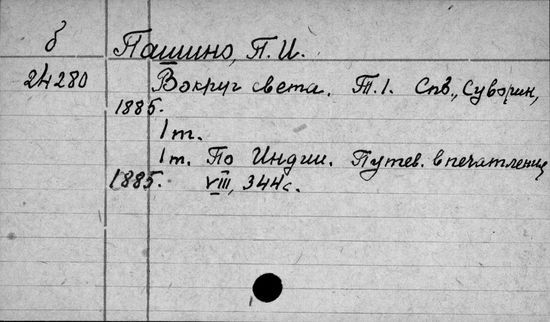 б
Пашино, П. И.
24280
Вокруг света. Т. 1. Спб., Суворин,
1885.
1 т.
1 т. По Индии. Путев. впечатления
1885. VIII, 344 с.